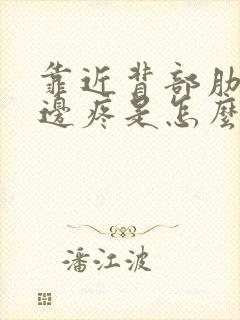 靠近背部肋
邊疼是怎麼
潘江波